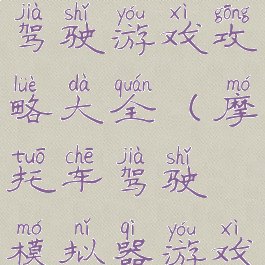 jià shǐ yóu xì gōng
驾驶游戏攻
lüè dà quán mó
略大全(摩
tuō chē jià shǐ
托车驾驶
mó nǐ qì yóu xì
模拟器游戏